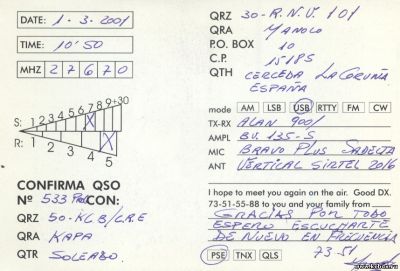 DATE: 1-3-2001
TIME: 10'50
MHZ 27670
S: 1 2 3 4 5 6 7 8 9+30
R: 1 2 3 4 5
CONFIRMA QSO
Nº 533 CON:
QRZ 50-KCB/CRE
QRA KAPA
QTR SOLEADO
QRZ 30-R.N.V 101
QRA MANOLO
P.O. BOX 10
C.P. 15185
QTH CERCEDA LA CORUÑA
ESPAÑA
mode AM LSB USB RTTY FM CW
TX-RX ALAN 9001
AMPL B.V. 135-S
MIC BRAVO PLUS SADELTA
ANT VERTICAL SIRTEL 2016
I hope to meet you again on the air. Good DX.
73-51-55-88 to you and your family from
GRACIAS POR TODO
ESPERO ESCUCHARTE
DE NUEVO EN FRECUENCIA
73-51
PSE TNX QLS